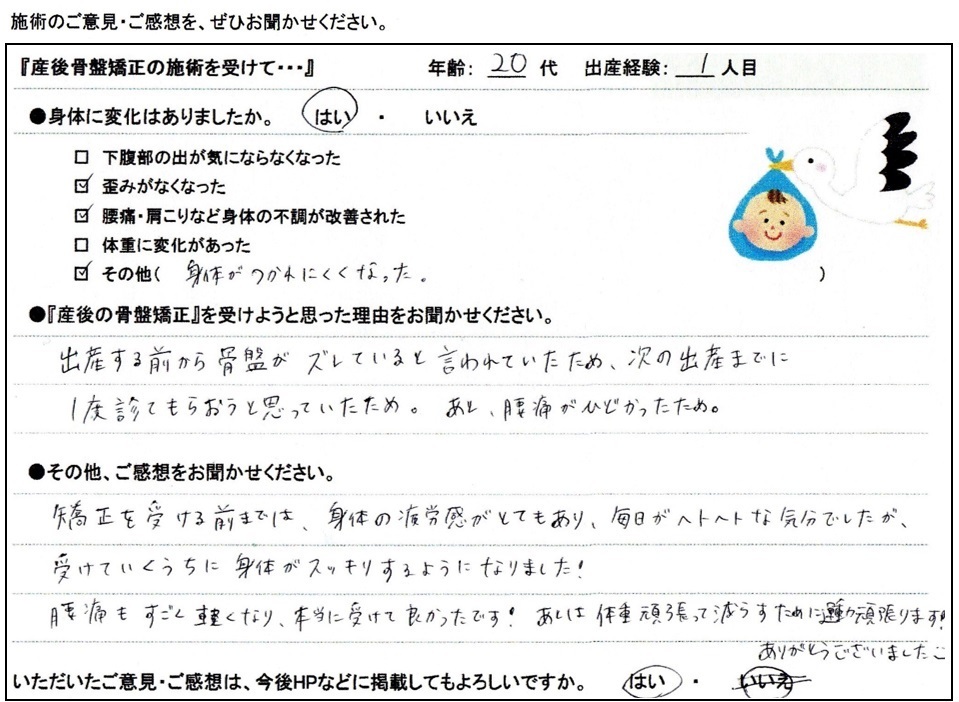 施術のご意見・ご感想を、ぜひお聞かせください。
『産後骨盤矯正の施術を受けて・・・』 年齢： 20 代 出産経験： 1 人目
●身体に変化はありましたか。 はい ・ いいえ
□ 下腹部の出が気にならなくなった
☑ 歪みがなくなった
☑ 腰痛・肩こりなど身体の不調が改善された
□ 体重に変化があった
☑ その他( 身体がつかれにくくなった。 )
●『産後の骨盤矯正』を受けようと思った理由をお聞かせください。
出産する前から骨盤がズレていると言われていたため、次の出産までに
1度診てもらおうと思っていたため。 あと、腰痛がひどかったため。
●その他、ご感想をお聞かせください。
矯正を受ける前までは、身体の疲労感がとてもあり、毎日がヘトヘトな気分でしたが、
受けていくうちに身体がスッキリするようになりました!
腰痛もすごく軽くなり、本当に受けて良かったです! あとは体重頑張って減らすために運動頑張ります!
ありがとうございました
いただいたご意見・ご感想は、今後HPなどに掲載してもよろしいですか。 はい ・ いいえ